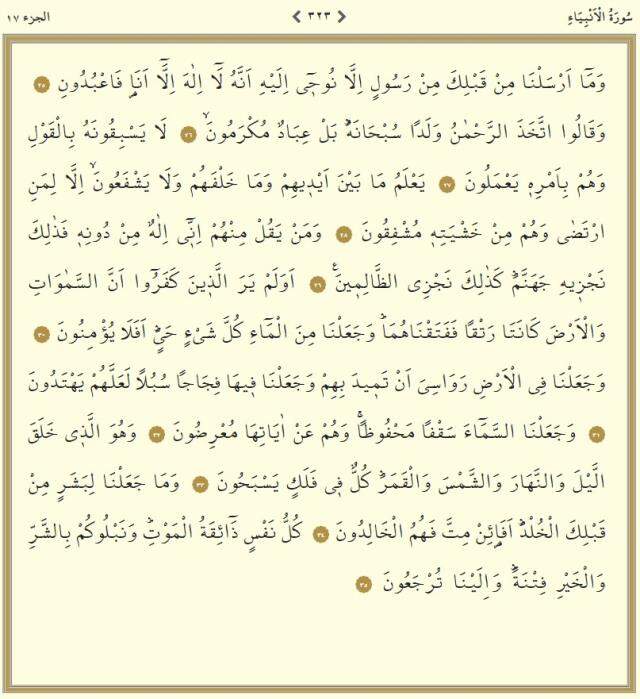 سُورَةُ الْاَنْبِيَٓاءِ ٣٢٣ الجزء ١٧
وَمَٓا اَرْسَلْنَا مِنْ قَبْلِكَ مِنْ رَسُولٍ اِلَّا نُوحٖٓي اِلَيْهِ اَنَّهُ لَٓا اِلٰهَ اِلَّٓا اَنَا۬ فَاعْبُدُونِ ٢٥
وَقَالُوا اتَّخَذَ الرَّحْمٰنُ وَلَدًا سُبْحَانَهُۜ بَلْ عِبَادٌ مُكْرَمُونَۙ ٢٦ لَا يَسْبِقُونَهُ بِالْقَوْلِ
وَهُمْ بِاَمْرِهٖ يَعْمَلُونَ ٢٧ يَعْلَمُ مَا بَيْنَ اَيْدٖيهِمْ وَمَا خَلْفَهُمْ وَلَا يَشْفَعُونَۙ اِلَّا لِمَنِ
ارْتَضٰى وَهُمْ مِنْ خَشْيَتِهٖ مُشْفِقُونَ ٢٨ وَمَنْ يَقُلْ مِنْهُمْ اِنّٖٓي اِلٰهٌ مِنْ دُونِهٖ فَذٰلِكَ
نَجْزٖيهِ جَهَنَّمَۜ كَذٰلِكَ نَجْزِي الظَّالِمٖينَ۟ ٢٩ اَوَلَمْ يَرَ الَّذٖينَ كَفَرُٓوا اَنَّ السَّمٰوَاتِ
وَالْاَرْضَ كَانَتَا رَتْقًا فَفَتَقْنَاهُمَاۜ وَجَعَلْنَا مِنَ الْمَٓاءِ كُلَّ شَيْءٍ حَيٍّۜ اَفَلَا يُؤْمِنُونَ ٣٠
وَجَعَلْنَا فِي الْاَرْضِ رَوَاسِيَ اَنْ تَمٖيدَ بِهِمْ وَجَعَلْنَا فٖيهَا فِجَاجًا سُبُلًا لَعَلَّهُمْ يَهْتَدُونَ
٣١ وَجَعَلْنَا السَّمَٓاءَ سَقْفًا مَحْفُوظًاۚ وَهُمْ عَنْ اٰيَاتِهَا مُعْرِضُونَ ٣٢ وَهُوَ الَّذٖي خَلَقَ
الَّيْلَ وَالنَّهَارَ وَالشَّمْسَ وَالْقَمَرَۜ كُلٌّ فٖي فَلَكٍ يَسْبَحُونَ ٣٣ وَمَا جَعَلْنَا لِبَشَرٍ مِنْ
قَبْلِكَ الْخُلْدَۜ اَفَا۬ئِنْ مِتَّ فَهُمُ الْخَالِدُونَ ٣٤ كُلُّ نَفْسٍ ذَٓائِقَةُ الْمَوْتِۜ وَنَبْلُوكُمْ بِالشَّرِّ
وَالْخَيْرِ فِتْنَةًۜ وَاِلَيْنَا تُرْجَعُونَ ٣٥